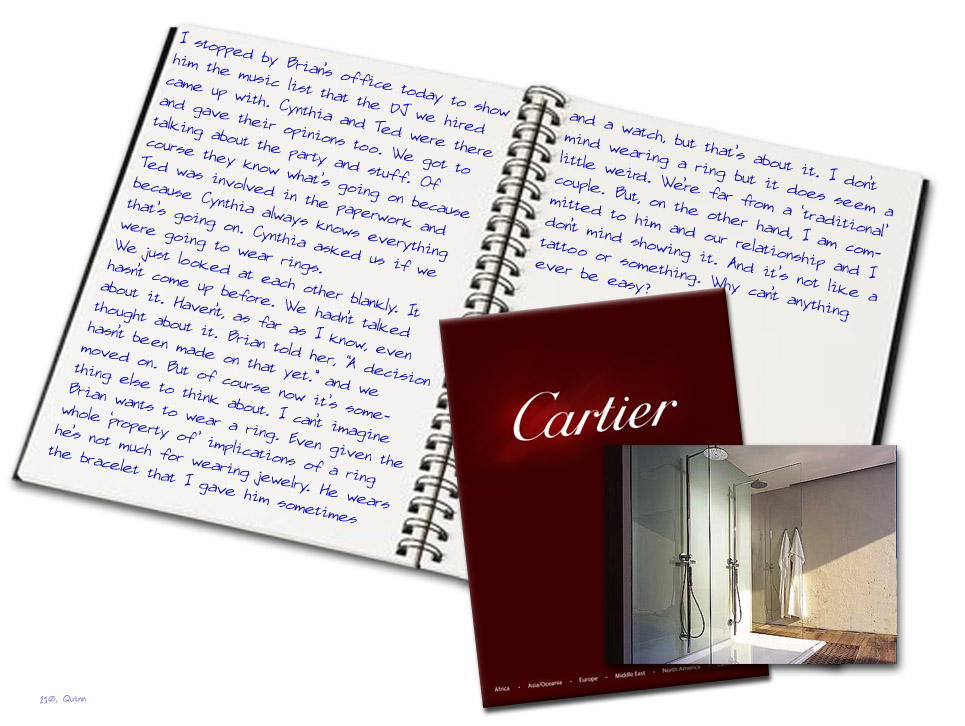 I stopped by Brian's office today to show
him the music list that the DJ we hired
came up with. Cynthia and Ted were there
and gave their opinions too. We got to
talking about the party and stuff. Of
course they know what's going on because
Ted was involved in the paperwork and
because Cynthia always knows everything
that's going on. Cynthia asked us if we
were going to wear rings.
We just looked at each other blankly. It
hasn't come up before. We hadn't talked
about it. Haven't, as far as I know, even
thought about it. Brian told her, "A decision
hasn't been made on that yet." and we
moved on. But of course now it's some-
thing else to think about. I can't imagine
Brian wants to wear a ring. Even given the
whole 'property of' implications of a ring
he's not much for wearing jewelry. He wears
the bracelet that I gave him sometimes
and a watch, but that's about it. I don't
mind wearing a ring but it does seem a
little weird. We're far from a 'traditional'
couple. But, on the other hand, I am com-
mitted to him and our relationship and I
don't mind showing it. And it's not like a
tattoo or something. Why can't anything
ever be easy?
Cartier
Africa - Asia/Oceania - Europe - Middle East - North America -
Quinn